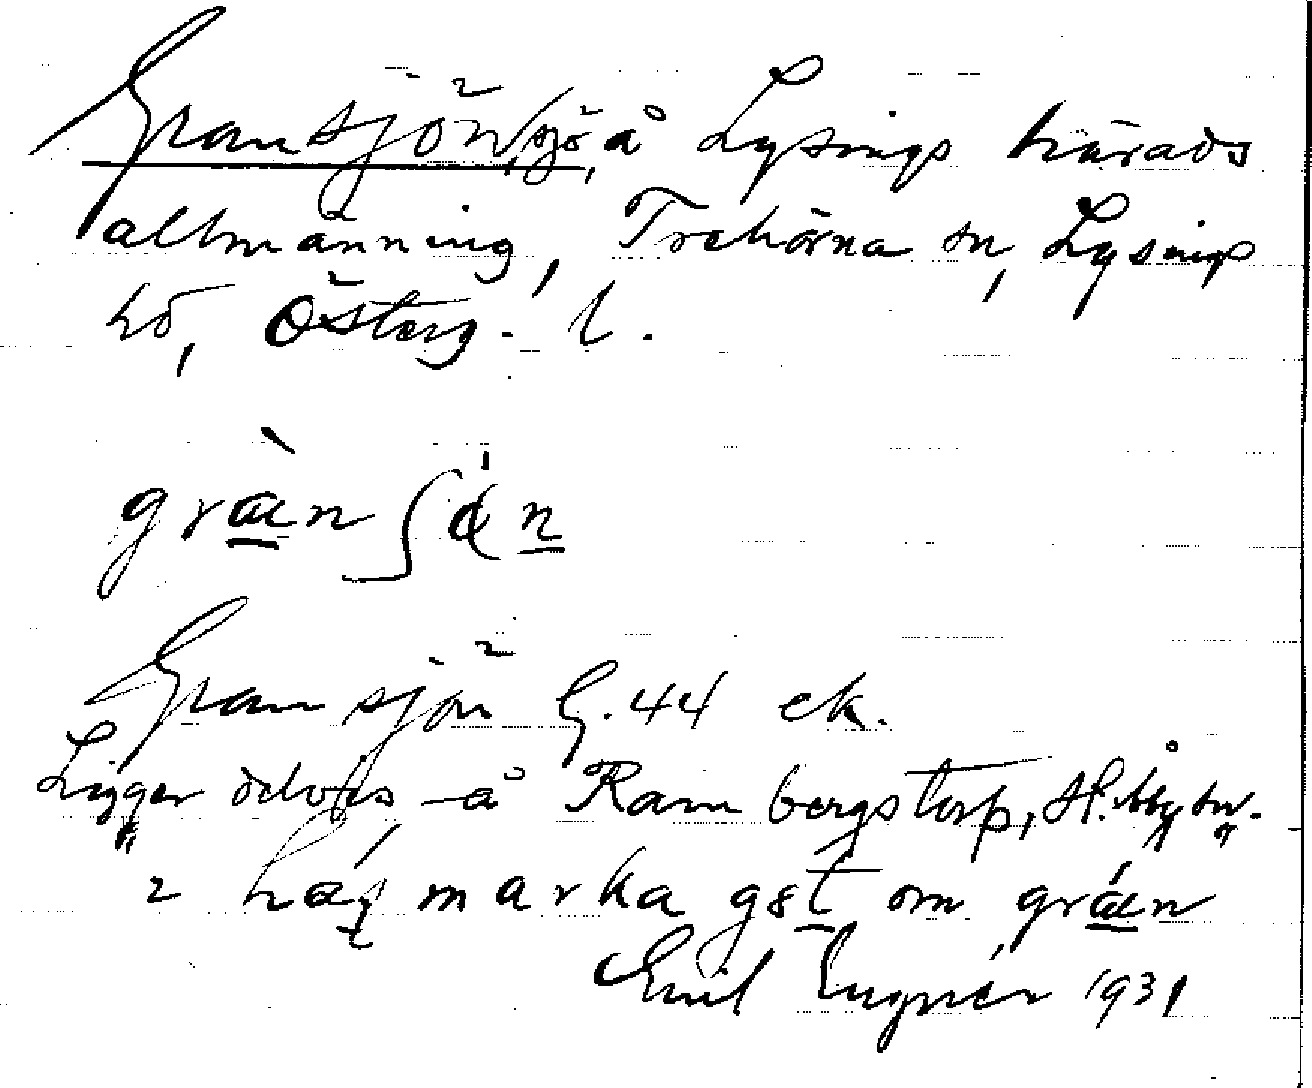 Gransjön, sjö, å Lysings härads
allmänning, Trehörna sn, Lysings
hd, Österg. l.
Gransjön G. 44 ek.
Ligger delvis å Rambergstorp, St. Åby sn.
marka gst om
Emil Lugnér 1931